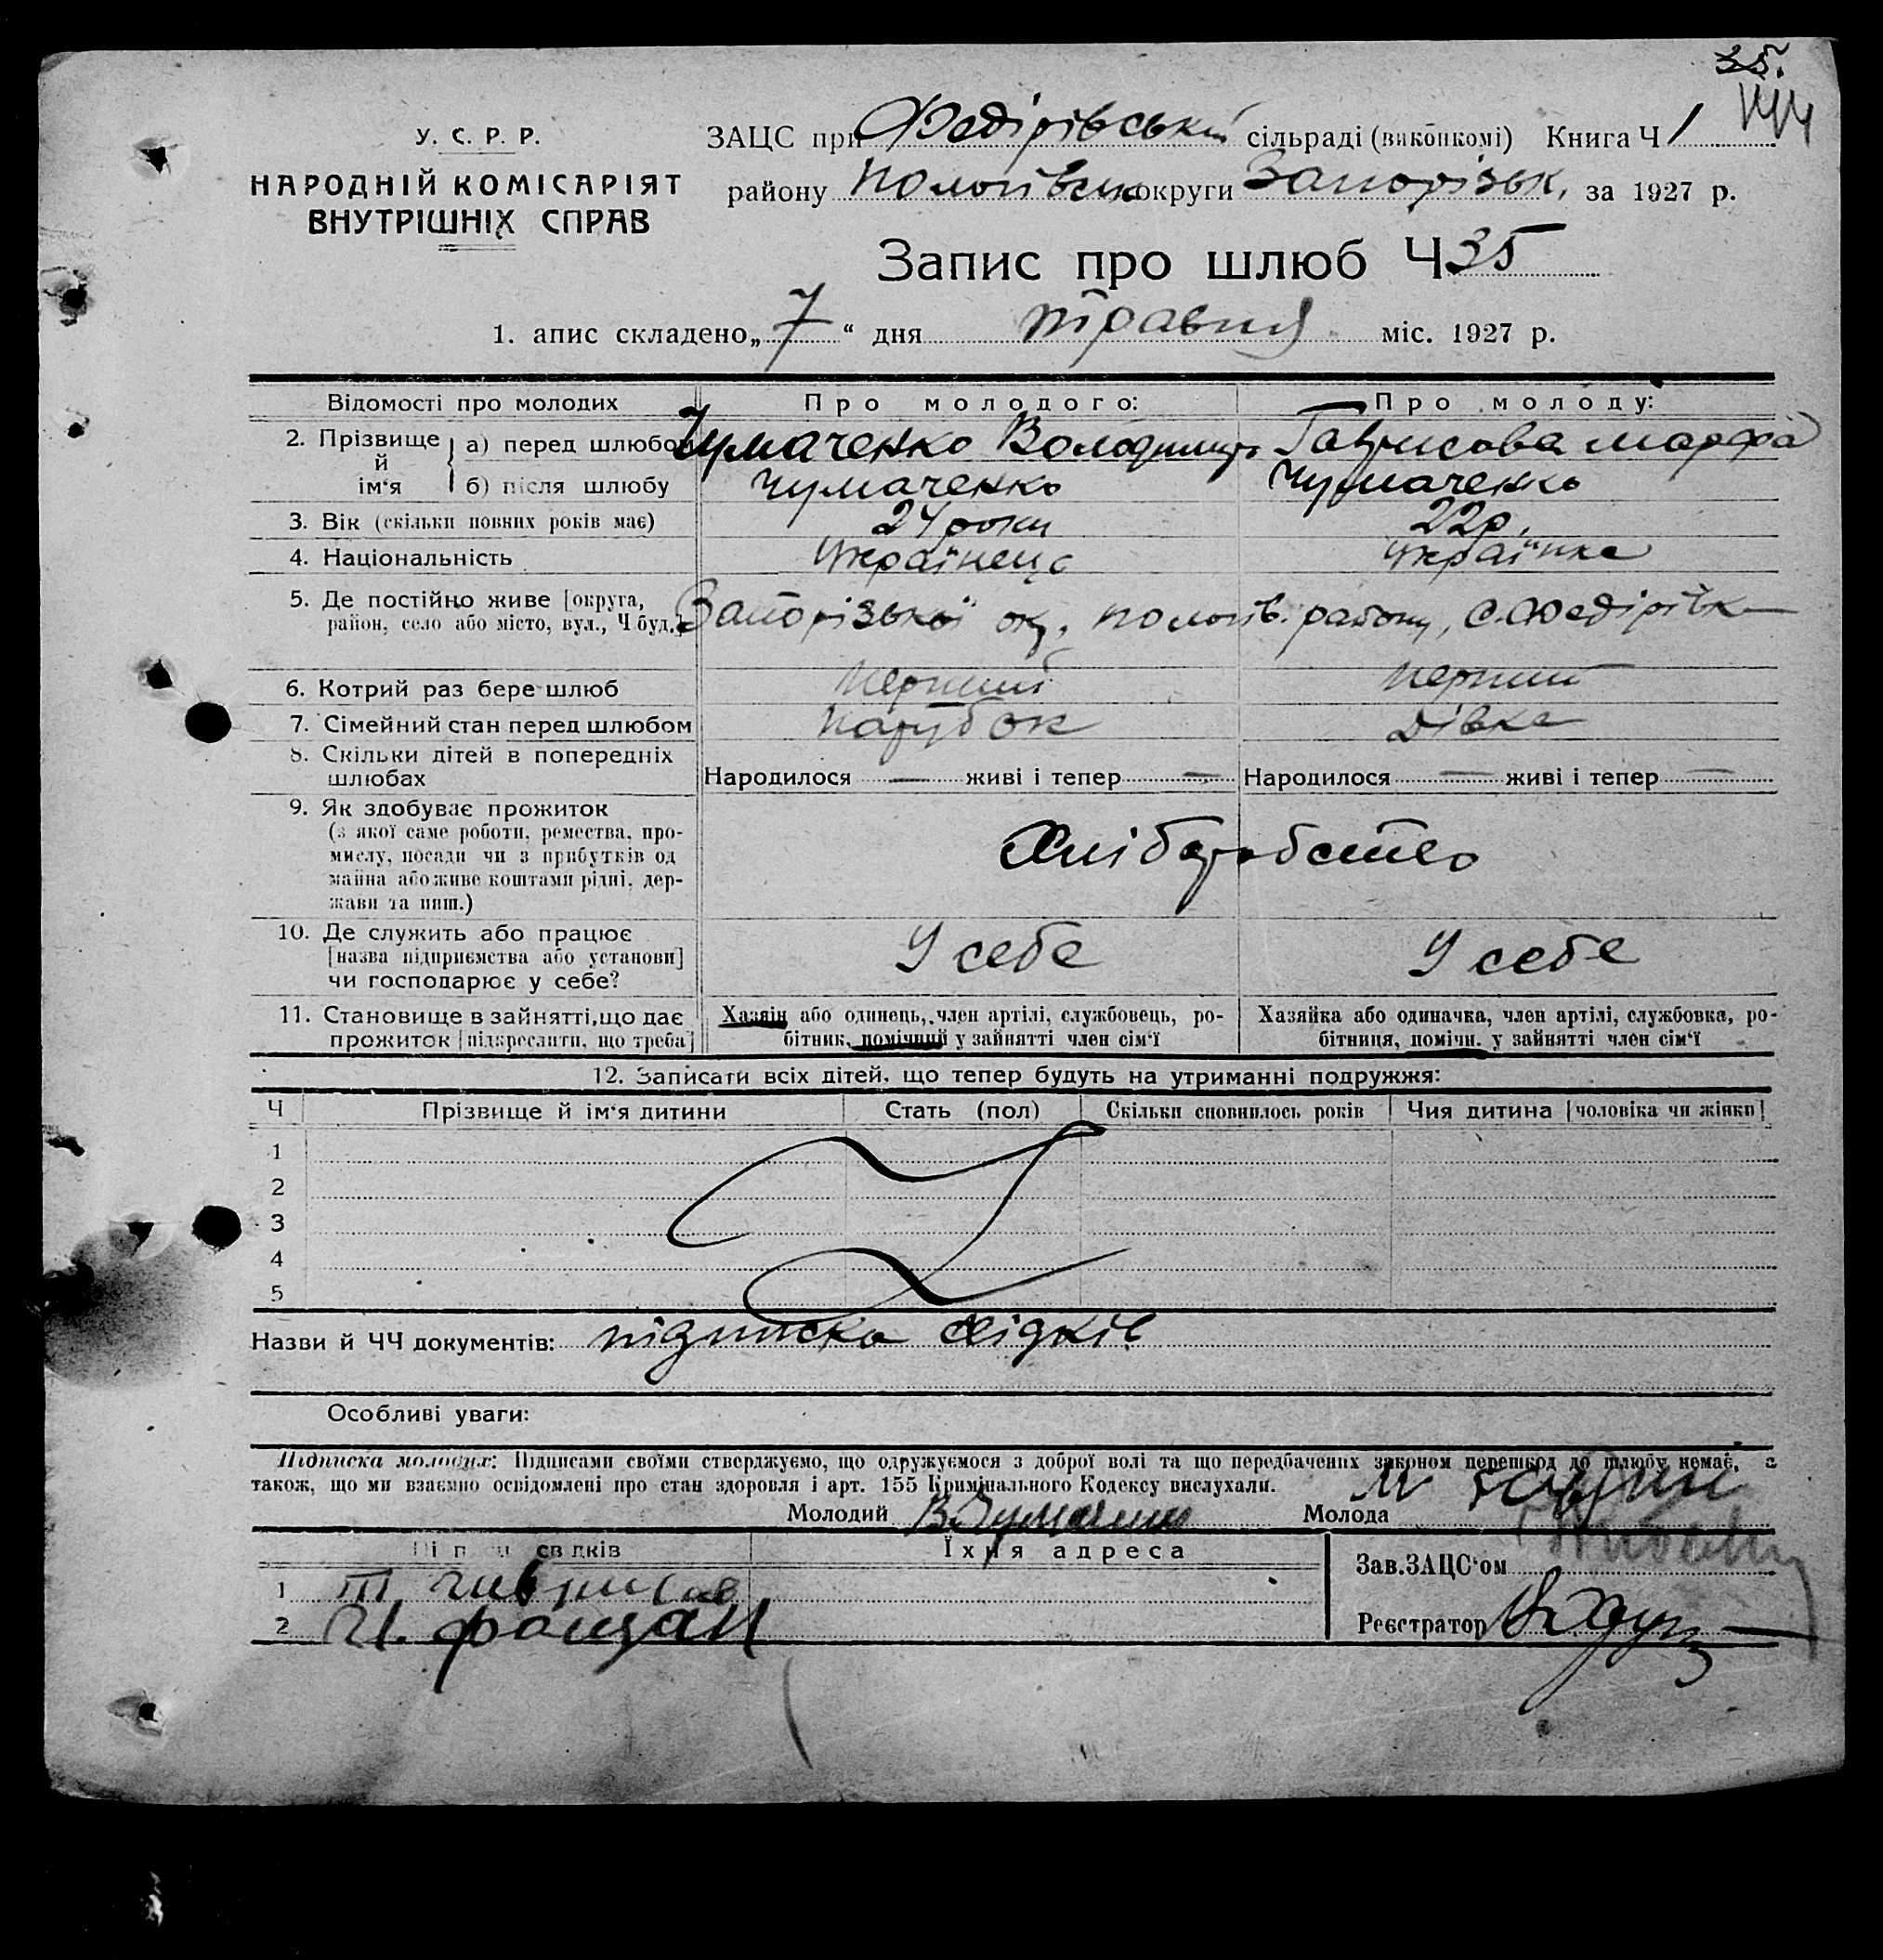 35.
144
У. С. Р. Р.
НАРОДНІЙ КОМІСАРІЯТ
ВНУТРІШНІХ СПРАВ
ЗАЦС при Федірівській сільраді (виконкомі) Книга Ч 1
району Пологівськ округи Запорізьк. за 1927 р.
Запис про шлюб Ч 35
1. апис складено „7“ дня травня міс. 1927 р.
Відомості про молодих Про молодого: Про молоду:
2. Прізвище й ім‘я а) перед шлюбом Чумаченко Володимир Гаврисова Марфа
б) після шлюбу Чумаченко Чумаченко
3. Вік (скільки повних років має) 24 роки 22 р.
4. Національність Українець Українка
5. Де постійно живе [округа, район, село або місто, вул., Ч буд.] Запорізької ок. Пологів. району, с. Федірівк
6. Котрий раз бере шлюб Перший Перший
7. Сімейний стан перед шлюбом Парубок Дівка
8. Скільки дітей в попередніх шлюбах Народилося — живі і тепер — Народилося — живі і тепер —
9. Як здобуває прожиток
(з якої саме роботи, ремества, про-
мислу, посади чи з прибутків од
майна або живе коштами рідні, дер-
жави та инш.)
Хліборобство
10. Де служить або працює
[назва підприємства або установи]
чи господарює у себе?
У себе У себе
11. Становище в зайнятті, що дає
прожиток [підкреслити, що треба]
Хазяїн або одинець, член артілі, службовець, ро-
бітник, помічний у зайнятті член сім‘ї
Хазяйка або одиначка, член артілі, службовка, ро-
бітниця, помічн. у зайнятті член сім‘ї
12. Записати всіх дітей, що тепер будуть на утриманні подружжя:
Ч Прізвище й ім‘я дитини Стать (пол) Скільки сповнилось років Чия дитина [чоловіка чи жінки]
1
2
3
4
5
Назви й ЧЧ документів: підписка свідків
Особливі уваги:
Підписка молодих: Підписами своїми стверджуємо, що одружуємося з доброї волі та що передбачених законом перешкод до шлюбу немає, а
також, що ми взаємно освідомлені про стан здоровля і арт. 155 Кримінального Кодексу вислухали.
Молодий В. Молода М
Підписи свідків Їхня адреса
1
2 И. фощан
Зав. ЗАЦС‘ом
Реєстратор